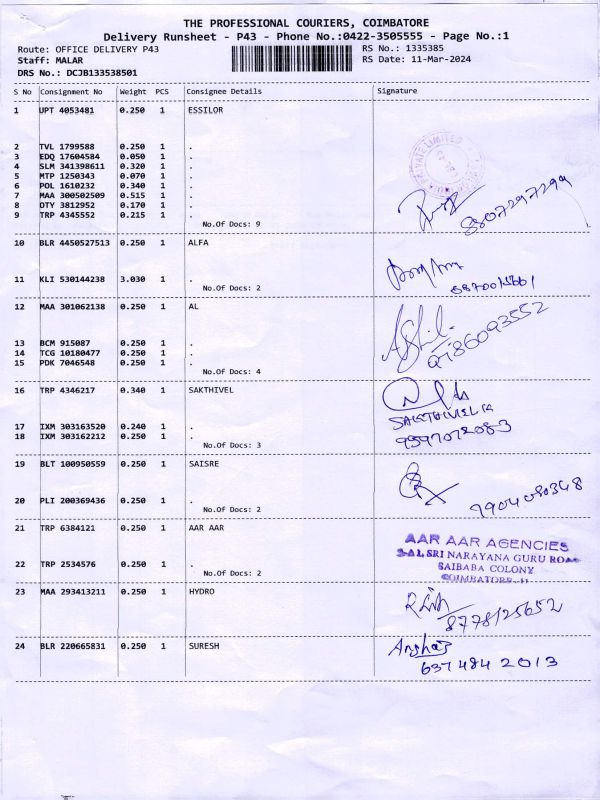 THE PROFESSIONAL COURIERS, COIMBATORE
Delivery Runsheet - P43 - Phone No.:0422-3505555 - Page No.:1
Route: OFFICE DELIVERY P43 RS No.: 1335385
Staff: MALAR RS Date: 11-Mar-2024
DRS No.: DCJB133538501
S No Consignment No Weight PCS Consignee Details Signature
1 UPT 4053481 0.250 1 ESSILOR
2 TVL 1799588 0.250 1 .
3 EDQ 17604584 0.050 1 .
4 SLM 341398611 0.320 1 .
5 MTP 1250343 0.070 1 .
6 POL 1610232 0.340 1 .
7 MAA 300502509 0.515 1 .
8 DTY 3812952 0.170 1 .
9 TRP 4345552 0.215 1 .
No.Of Docs: 9
8807297299
10 BLR 4450527513 0.250 1 ALFA
11 KLI 530144238 3.030 1 .
No.Of Docs: 2
12 MAA 301062138 0.250 1 AL
13 BCM 915087 0.250 1 .
14 TCG 10180477 0.250 1 .
15 PDK 7046548 0.250 1 .
No.Of Docs: 4
16 TRP 4346217 0.340 1 SAKTHIVEL
SAKTHIVEL K
17 IXM 303163520 0.240 1 .
18 IXM 303162212 0.250 1 .
No.Of Docs: 3
19 BLT 100950559 0.250 1 SAISRE
20 PLI 200369436 0.250 1 .
No.Of Docs: 2
21 TRP 6384121 0.250 1 AAR AAR
AAR AAR AGENCIES
SRI NARAYANA GURU ROAD
22 TRP 2534576 0.250 1 .
SAIBABA COLONY
No.Of Docs: 2
COIMBATORE-11
23 MAA 293413211 0.250 1 HYDRO
8778125652
24 BLR 220665831 0.250 1 SURESH
637484 2013